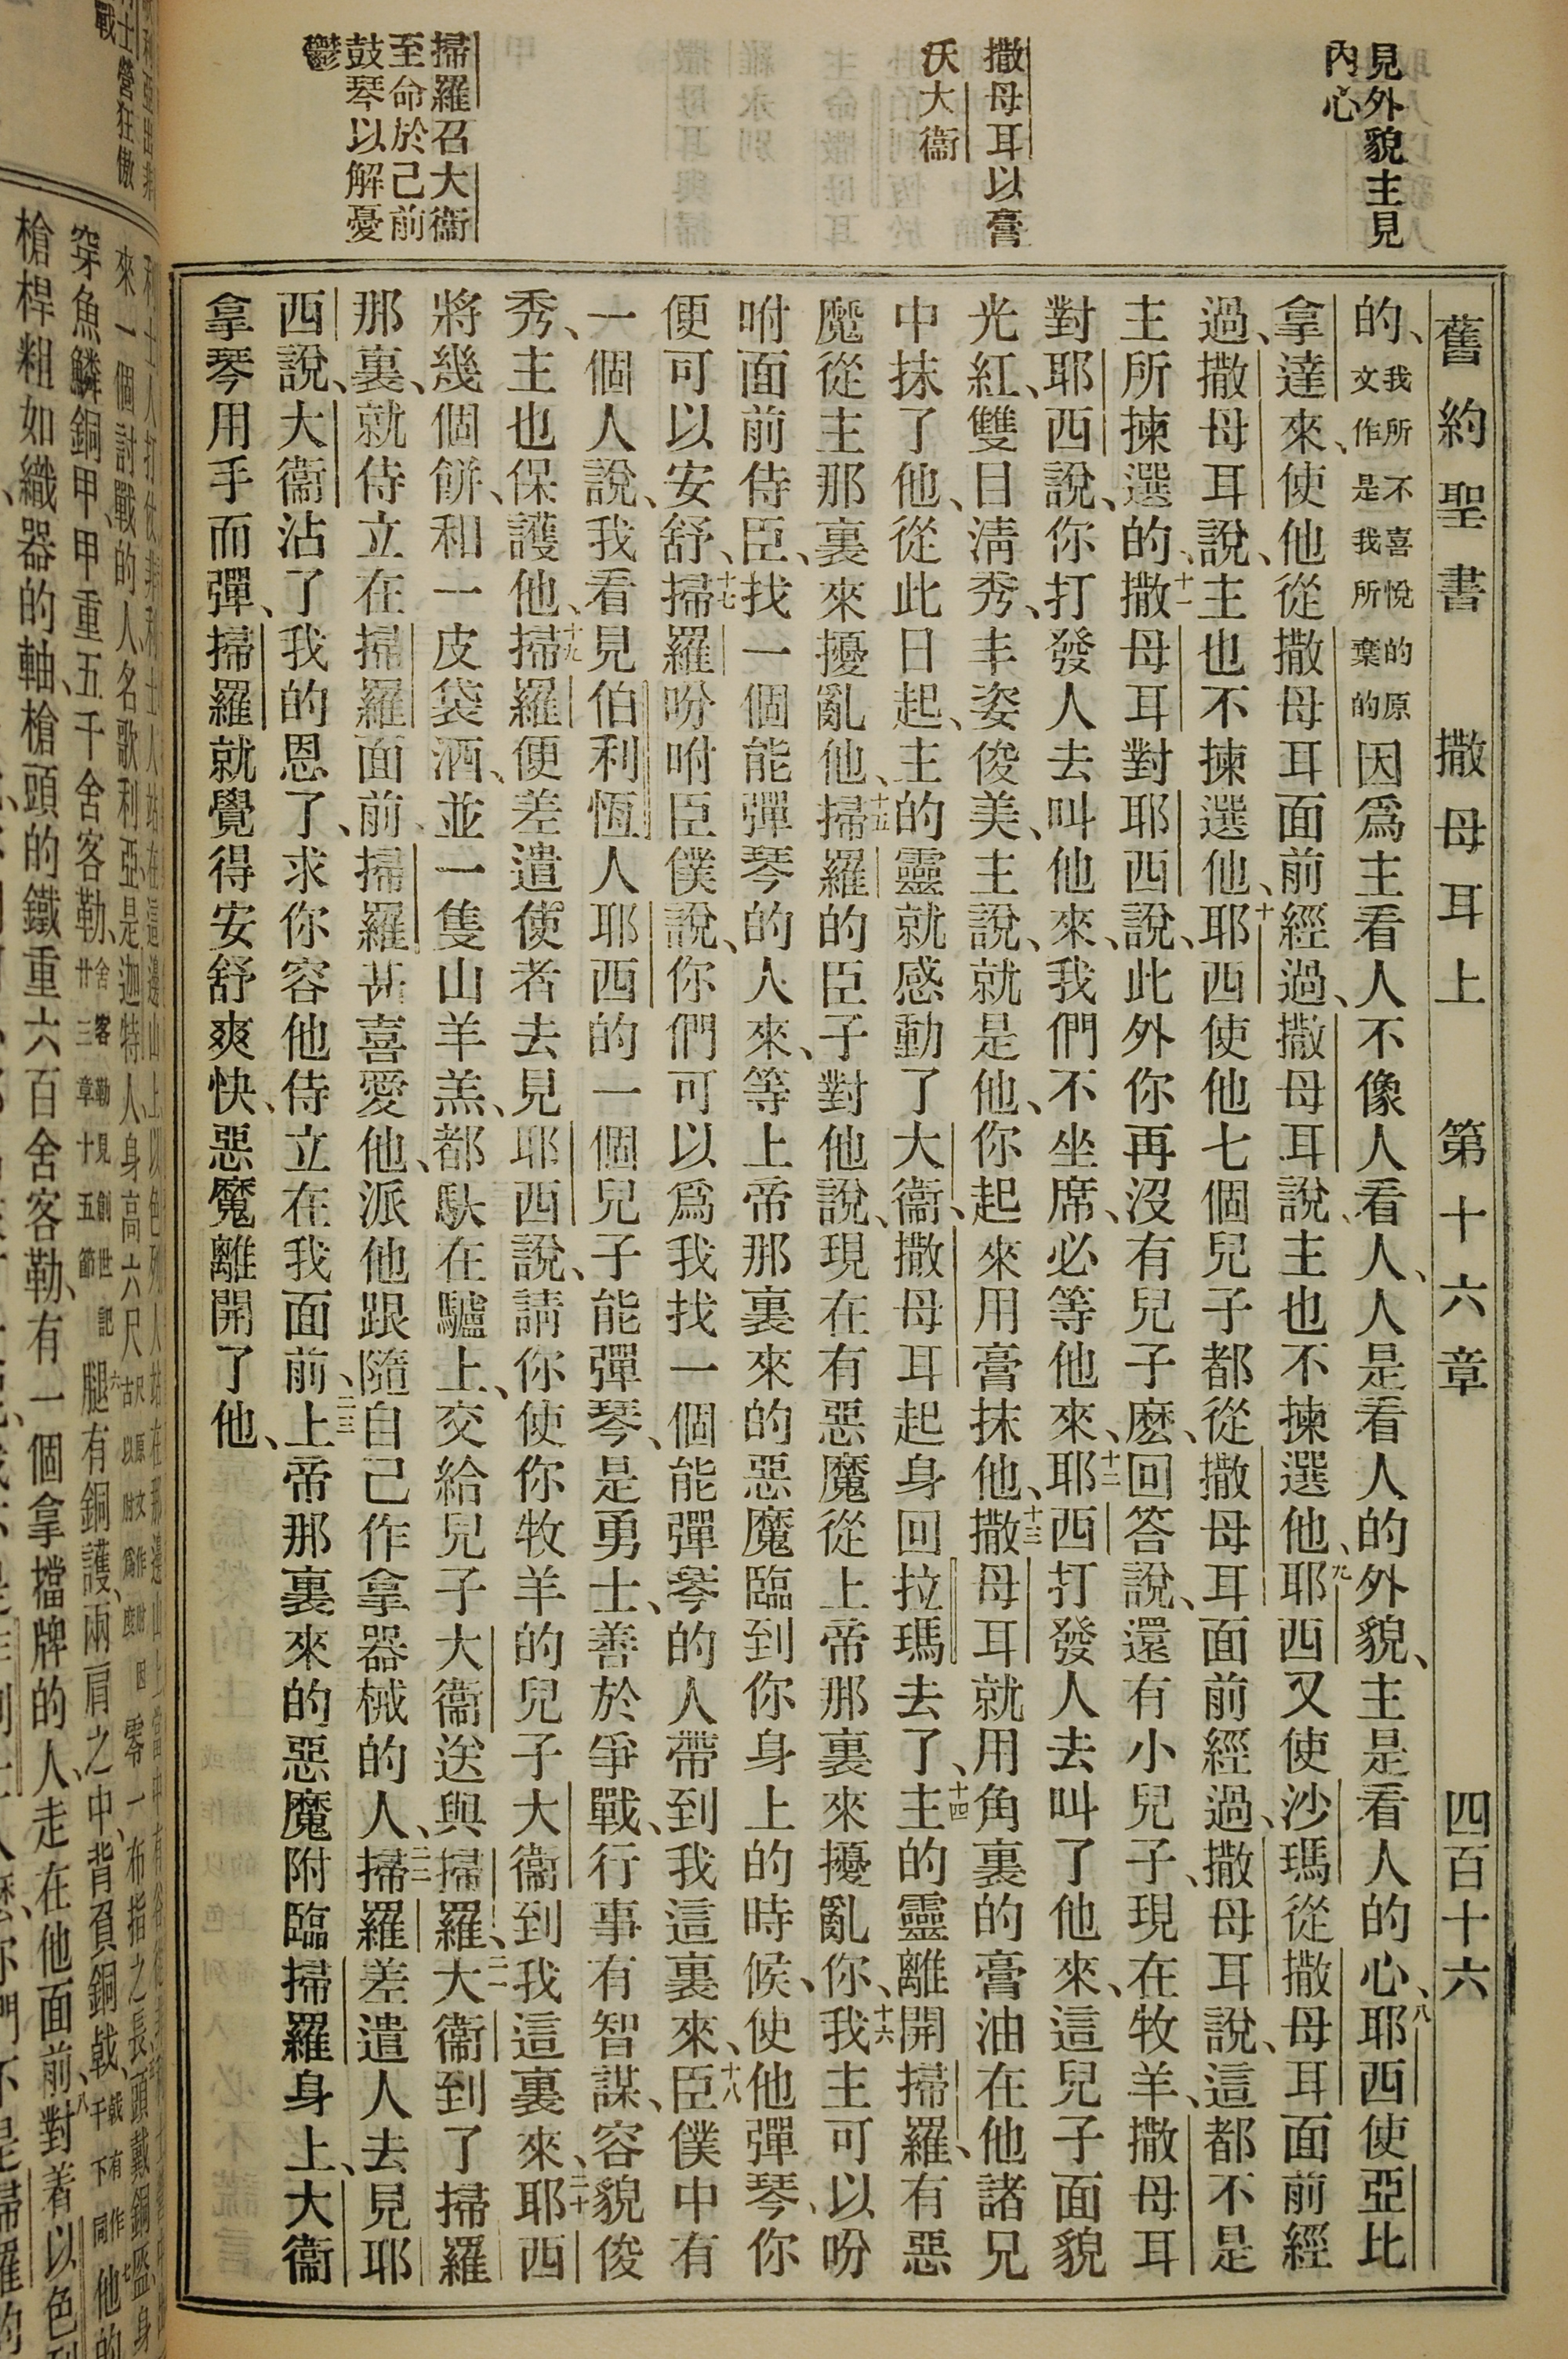 舊約聖書 撒母耳上 第十六章 四百十六
見外貌主見
內心
撒母耳以膏
沃大衞
掃羅召大衞
至命於己前
鼓琴以解憂
鬱
的、我所不喜悅的原文作是我所棄的因爲主看人不像人看人、人是看人的外貌、主是看人的心、八耶西使亞比
拿達來、使他從撒母耳面前經過、撒母耳說、主也不揀選他、九耶西又使沙瑪從撒母耳面前經
過、撒母耳說、主也不揀選他、十耶西使他七個兒子都從撒母耳面前經過、撒母耳說、這都不是
主所揀選的、十一撒母耳對耶西說、此外你再沒有兒子麽、回答說、還有小兒子、現在牧羊、撒母耳
對耶西說、你打發人去叫他來、我們不坐席、必等他來、十二耶西打發人去叫了他來、這兒子面貌
光紅、雙目淸秀、丰姿俊美、主說、就是他、你起來用膏抹他、十三撒母耳就用角裏的膏油在他諸兄
中抹了他、從此日起、主的靈就感動了大衞、撒母耳起身回拉瑪去了、十四主的靈離開掃羅、有惡
魔從主那裏來擾亂他、十五掃羅的臣子對他說、現在有惡魔從上帝那裏來擾亂你、十六我主可以吩
咐面前侍臣、找一個能彈琴的人來、等上帝那裏來的惡魔臨到你身上的時候、使他彈琴、你
便可以安舒、十七掃羅吩咐臣僕說、你們可以爲我找一個能彈琴的人帶到我這裏來、十八臣僕中有
一個人說、我看見伯利恆人耶西的一個兒子能彈琴、是勇士、善於爭戰、行事有智謀、容貌俊
秀、主也保護他、十九掃羅便差遣使者去見耶西說、請你使你牧羊的兒子大衞到我這裏來、二十耶西
將幾個餅、和一皮袋酒、並一隻山羊羔、都馱在驢上、交給兒子大衞送與掃羅、二一大衞到了掃羅
那裏、就侍立在掃羅面前、掃羅甚喜愛他、派他跟隨自己作拿器械的人、二二掃羅差遣人去見耶
西說、大衞沾了我的恩了、求你容他侍立在我面前、二三上帝那裏來的惡魔附臨掃羅身上、大衞
拿琴用手而彈、掃羅就覺得安舒爽快、惡魔離開了他、
來一個討戰的人、名歌利亞、是迦特人、身高六尺
穿魚鱗銅甲、甲重五千舍客勒、舍客勒見創世記廿三章十五節腿有銅護、兩肩之中、背負銅戟、
槍桿粗如織器的軸、槍頭的鐵重六百舍客勒、有一個拿擋牌的人、走在他面前、八對着以色列